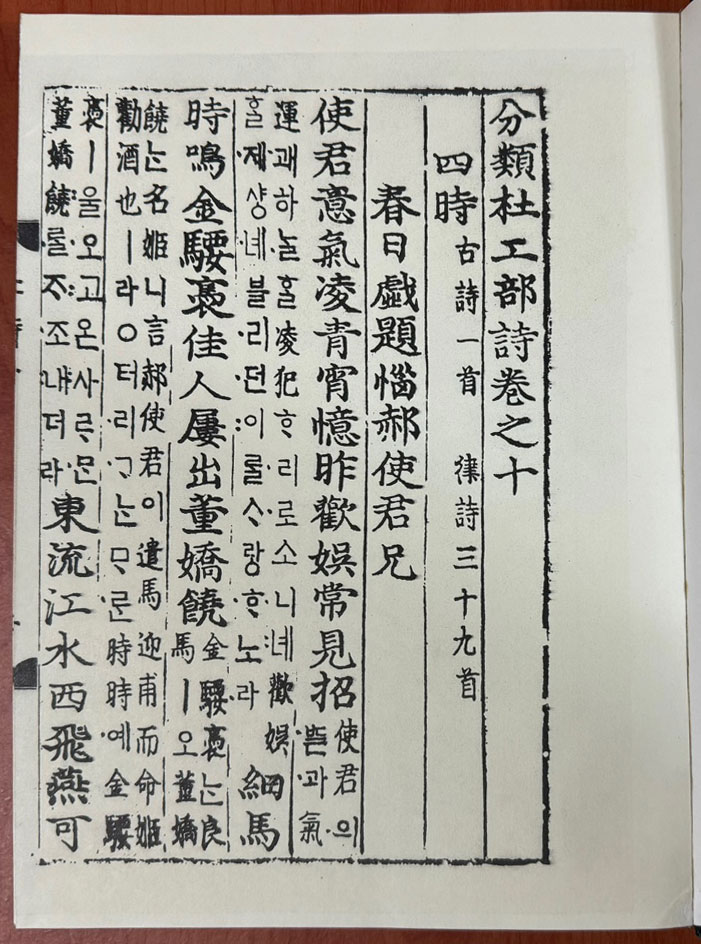 分類杜工部詩卷之十
四時 古詩一首 律詩三十九首
春日戱題惱郝使君兄
使君意氣凌青霄憶昨歡娛常見招 使君의
ᄠᅳᆮ과氣
運괘하ᄂᆞᆯ홀凌犯ᄒᆞ리로소니녜歡娛
홀제샹녜블리던이ᄅᆞᆯᄉᆞ랑ᄒᆞ노라 細馬
時鳴金騕褭佳人屢出董嬌饒 金騕褭는良
馬ㅣ오董嬌
饒는名姬니言郝使君이遣馬迎甫而命姬
勸酒也ㅣ라○터리ᄀᆞᄂᆞᆫᄆᆞᄅᆞᆫ時時예金騕
褭ㅣ울오고온사ᄅᆞᄆᆞᆫ
董嬌饒ᄅᆞᆯᄌᆞ조내더라 東流江水西飛燕可